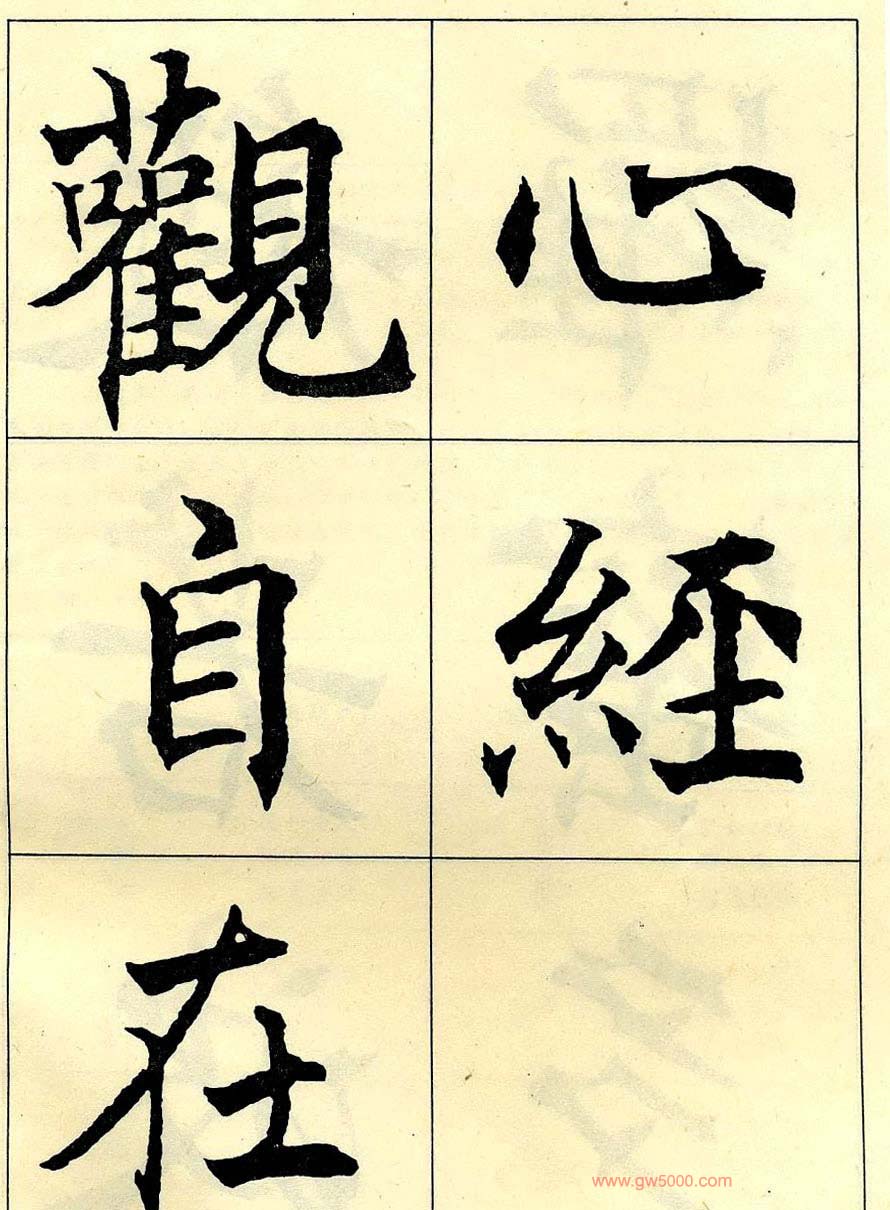 心經
觀自在
www.gw5000.com